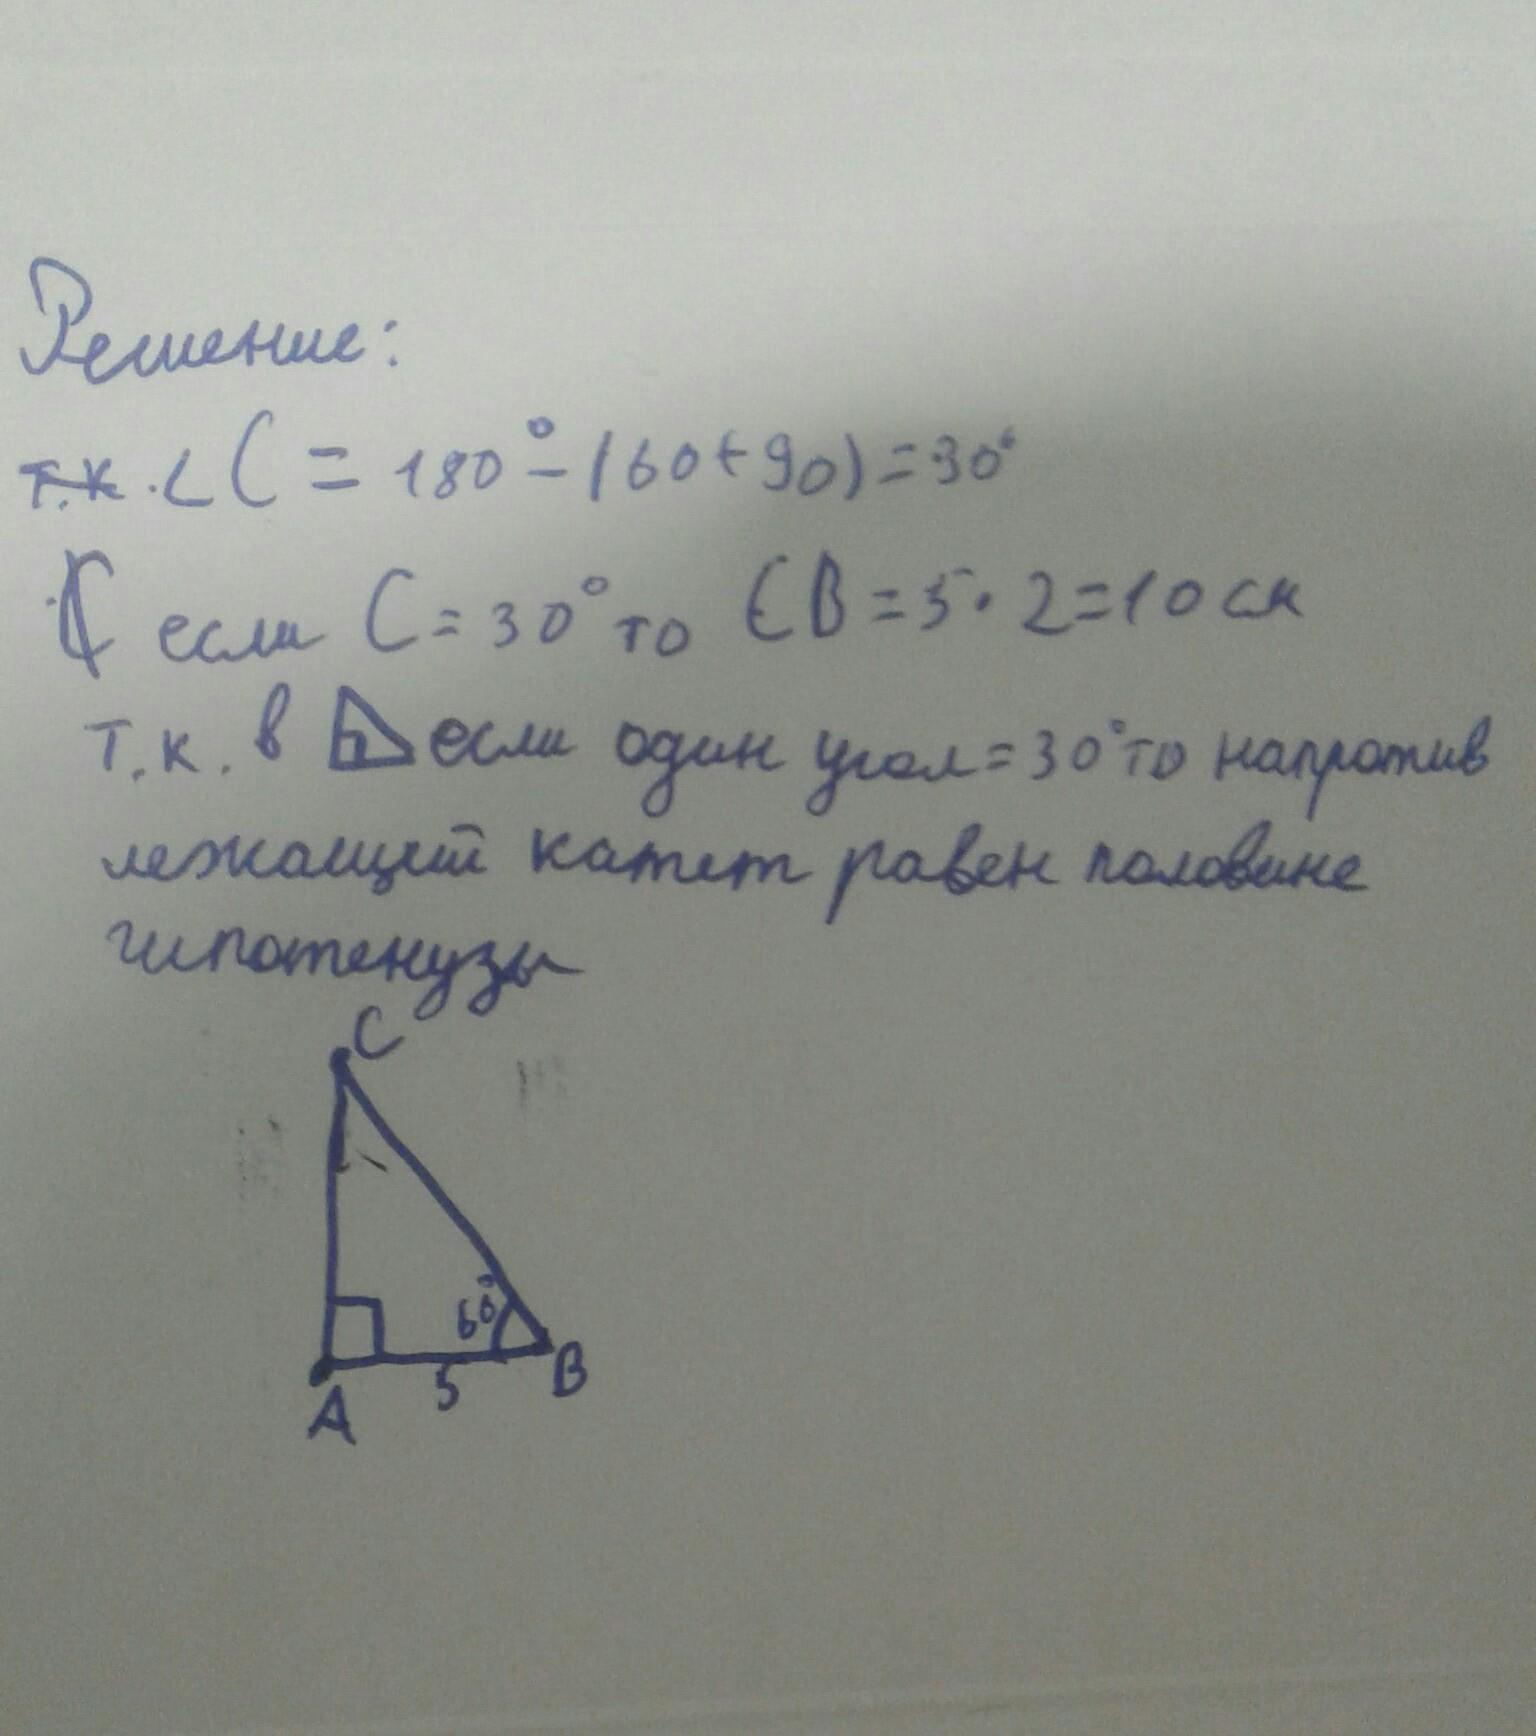 Решение:
т.к. ∠C = 180° - (60+90) = 30°
если C = 30° то CB = 5 · 2 = 10 см
т.к. в если один угол = 30° то напротив
лежащий катет равен половине
гипотенузы
C
60°
A 5 B